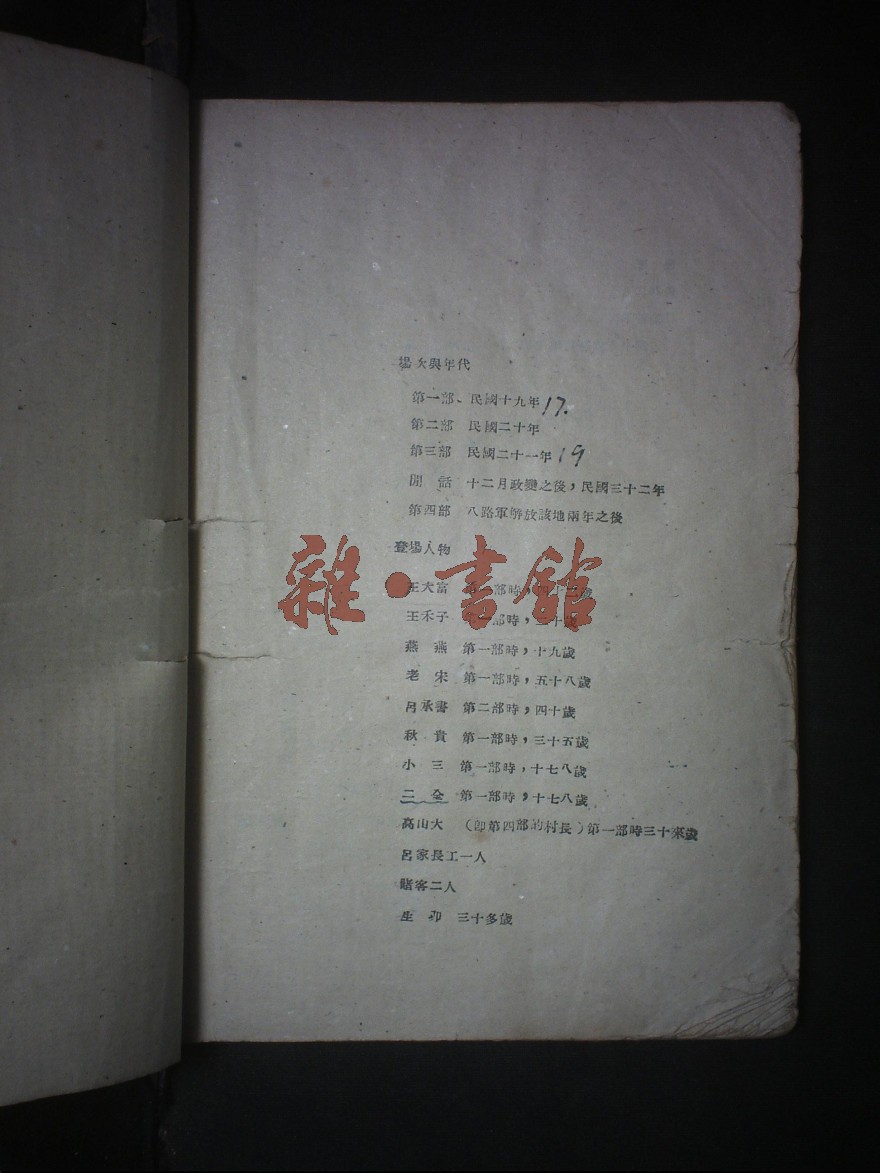 場次與年代
第一部、民國十九年 17.
第二部 民國二十年
第三部 民國二十一年 19
閒話 十二月政變之後，民國三十二年
第四部 八路軍解放該地兩年之後
登場人物
雜·書館
王大富 第一部時，四十 歲
王禾子 第一部時，二十歲
燕燕 第一部時，十九歲
老宋 第一部時，五十八歲
呂承書 第二部時，四十歲
秋貴 第一部時，三十五歲
小三 第一部時，十七八歲
二全 第一部時，十七八歲
高山大 （即第四部的村長）第一部時三十來歲
呂家長工一人
賭客二人
生卯 三十多歲